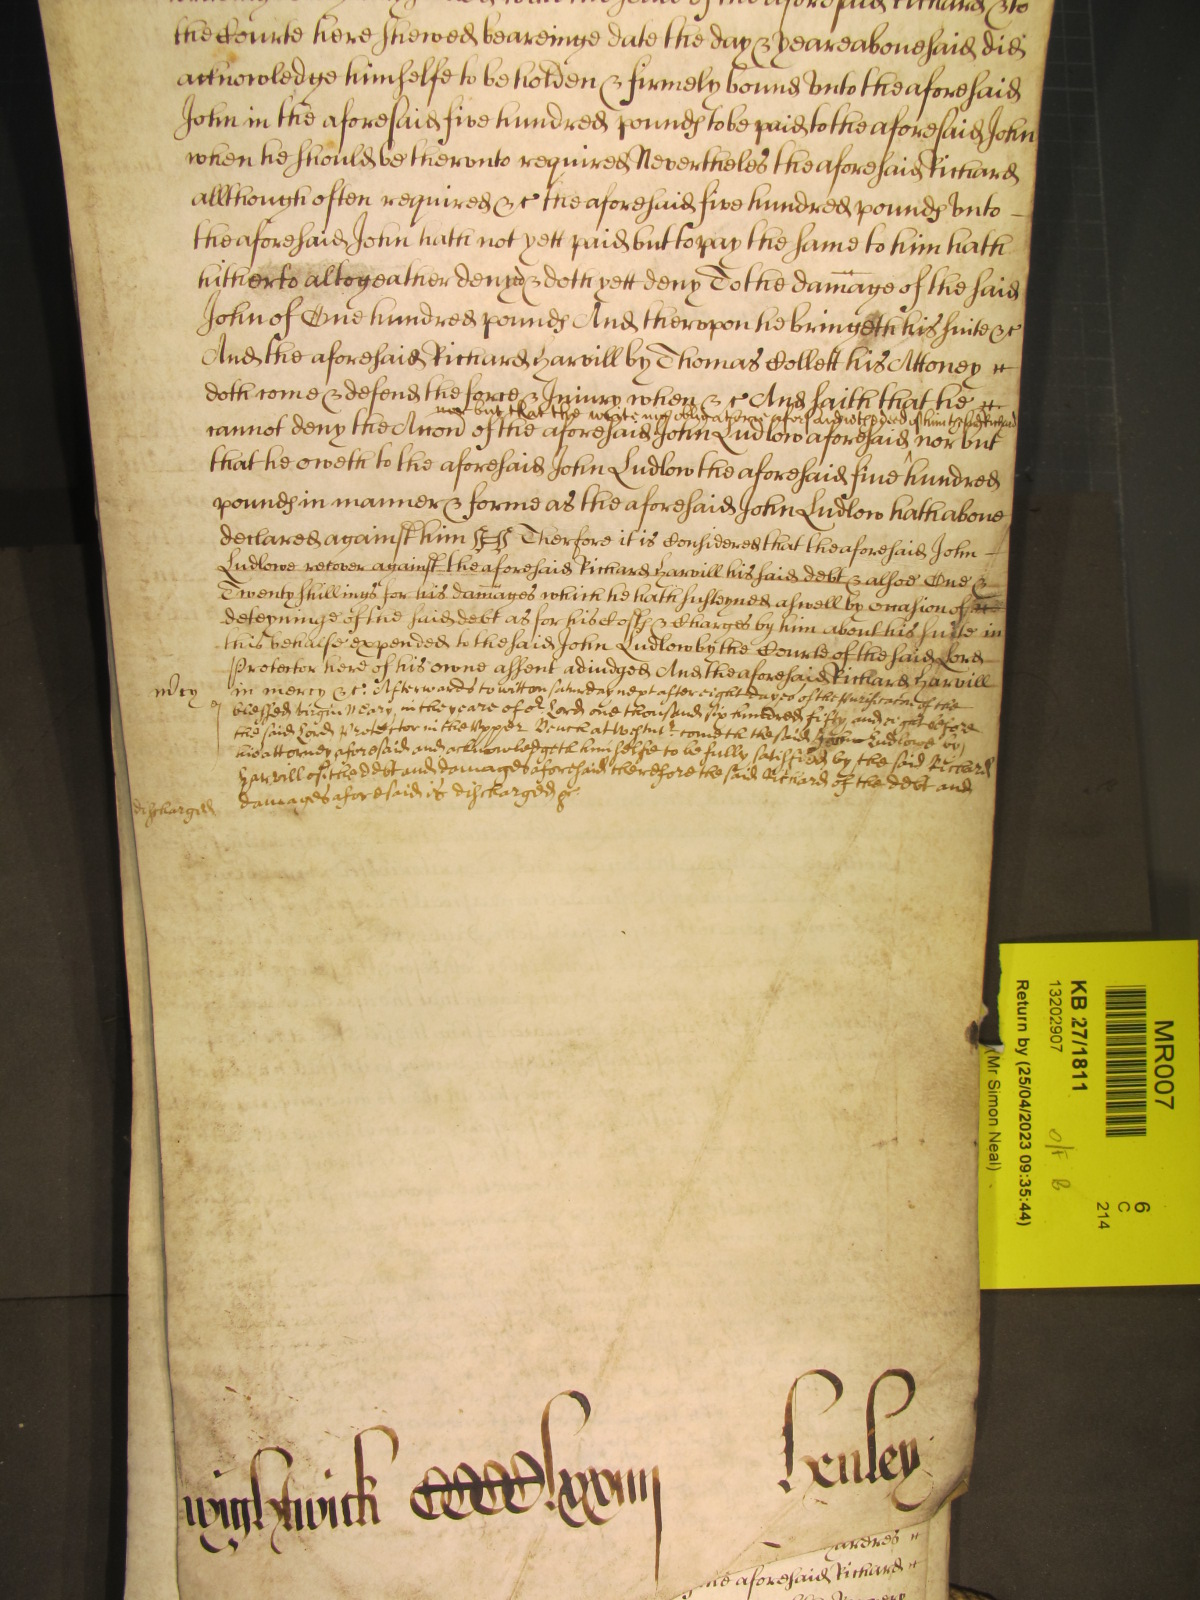 the Courte here shewed beareinge date the day & yeare abovesaid did
acknowledge himselfe to be holden & firmely bound unto the aforesaid
John in the aforesaid five hundred pounds to be paid to the aforesaid John
when he should be therunto required Neverthelεs the aforesaid Richard
allthough often required &c the aforesaid five hundred pounds unto
the aforesaid John hath not yett paid but to pay the same to him hath
hitherto altogeather denyd & doth yett deny To the damage of the said
John of One hundred pounds And therupon he bringeth his suite &c
And the aforesaid Richard Harvill by Thomas Collett his Attoney
doth come & defend the force & Iniury when &c And saith that he
nor but that the writeing obligatorie aforesaid is the deed of him the said Richard
cannot deny the Accon of the aforesaid John Ludlow aforesaid nor but
that he oweth to the aforesaid John Ludlow the aforesaid five hundred
pounds in manner & forme as the aforesaid John Ludlow hath above
declared against him Therfore it is Considered that the aforesaid John
Ludlowe recover against the aforesaid Richard Harvill his said debt & alsoe One &
Twenty shillings for his damages which he hath susteyned aswell by occasion of the
deteyninge of the said debt as for his Costs & Charges by him about his suite in
this behalfe expended to the said John Ludlow by the Courte of the said Lord
Protector here of his owne assent adiudged And the aforesaid Richard Harvill
mcy
in mercy &c. Afterwards to witt on saturday next after eight dayes of the Purificacon of the
blessed virgin Mary, in the yeare of or Lord one thousand six hundred fifty and eight before
the said Lord Protector in the Upper Bench at Westmr cometh the said John Ludlowe by
his attorney aforesaid and acknowledgeth himselfe to be fully satisfied by the said Richard
Harvill of the debt and damages aforesaid therefore the said Richard of the debt and
discharged
damages aforesaid is discharged &c
wightwick CCCClxxiiij Henley
the aforesaid Richard
MR007
KB 27/1811
13202907
Return by (25/04/2023 09:35:44)
(Mr Simon Neal)
6
C
214